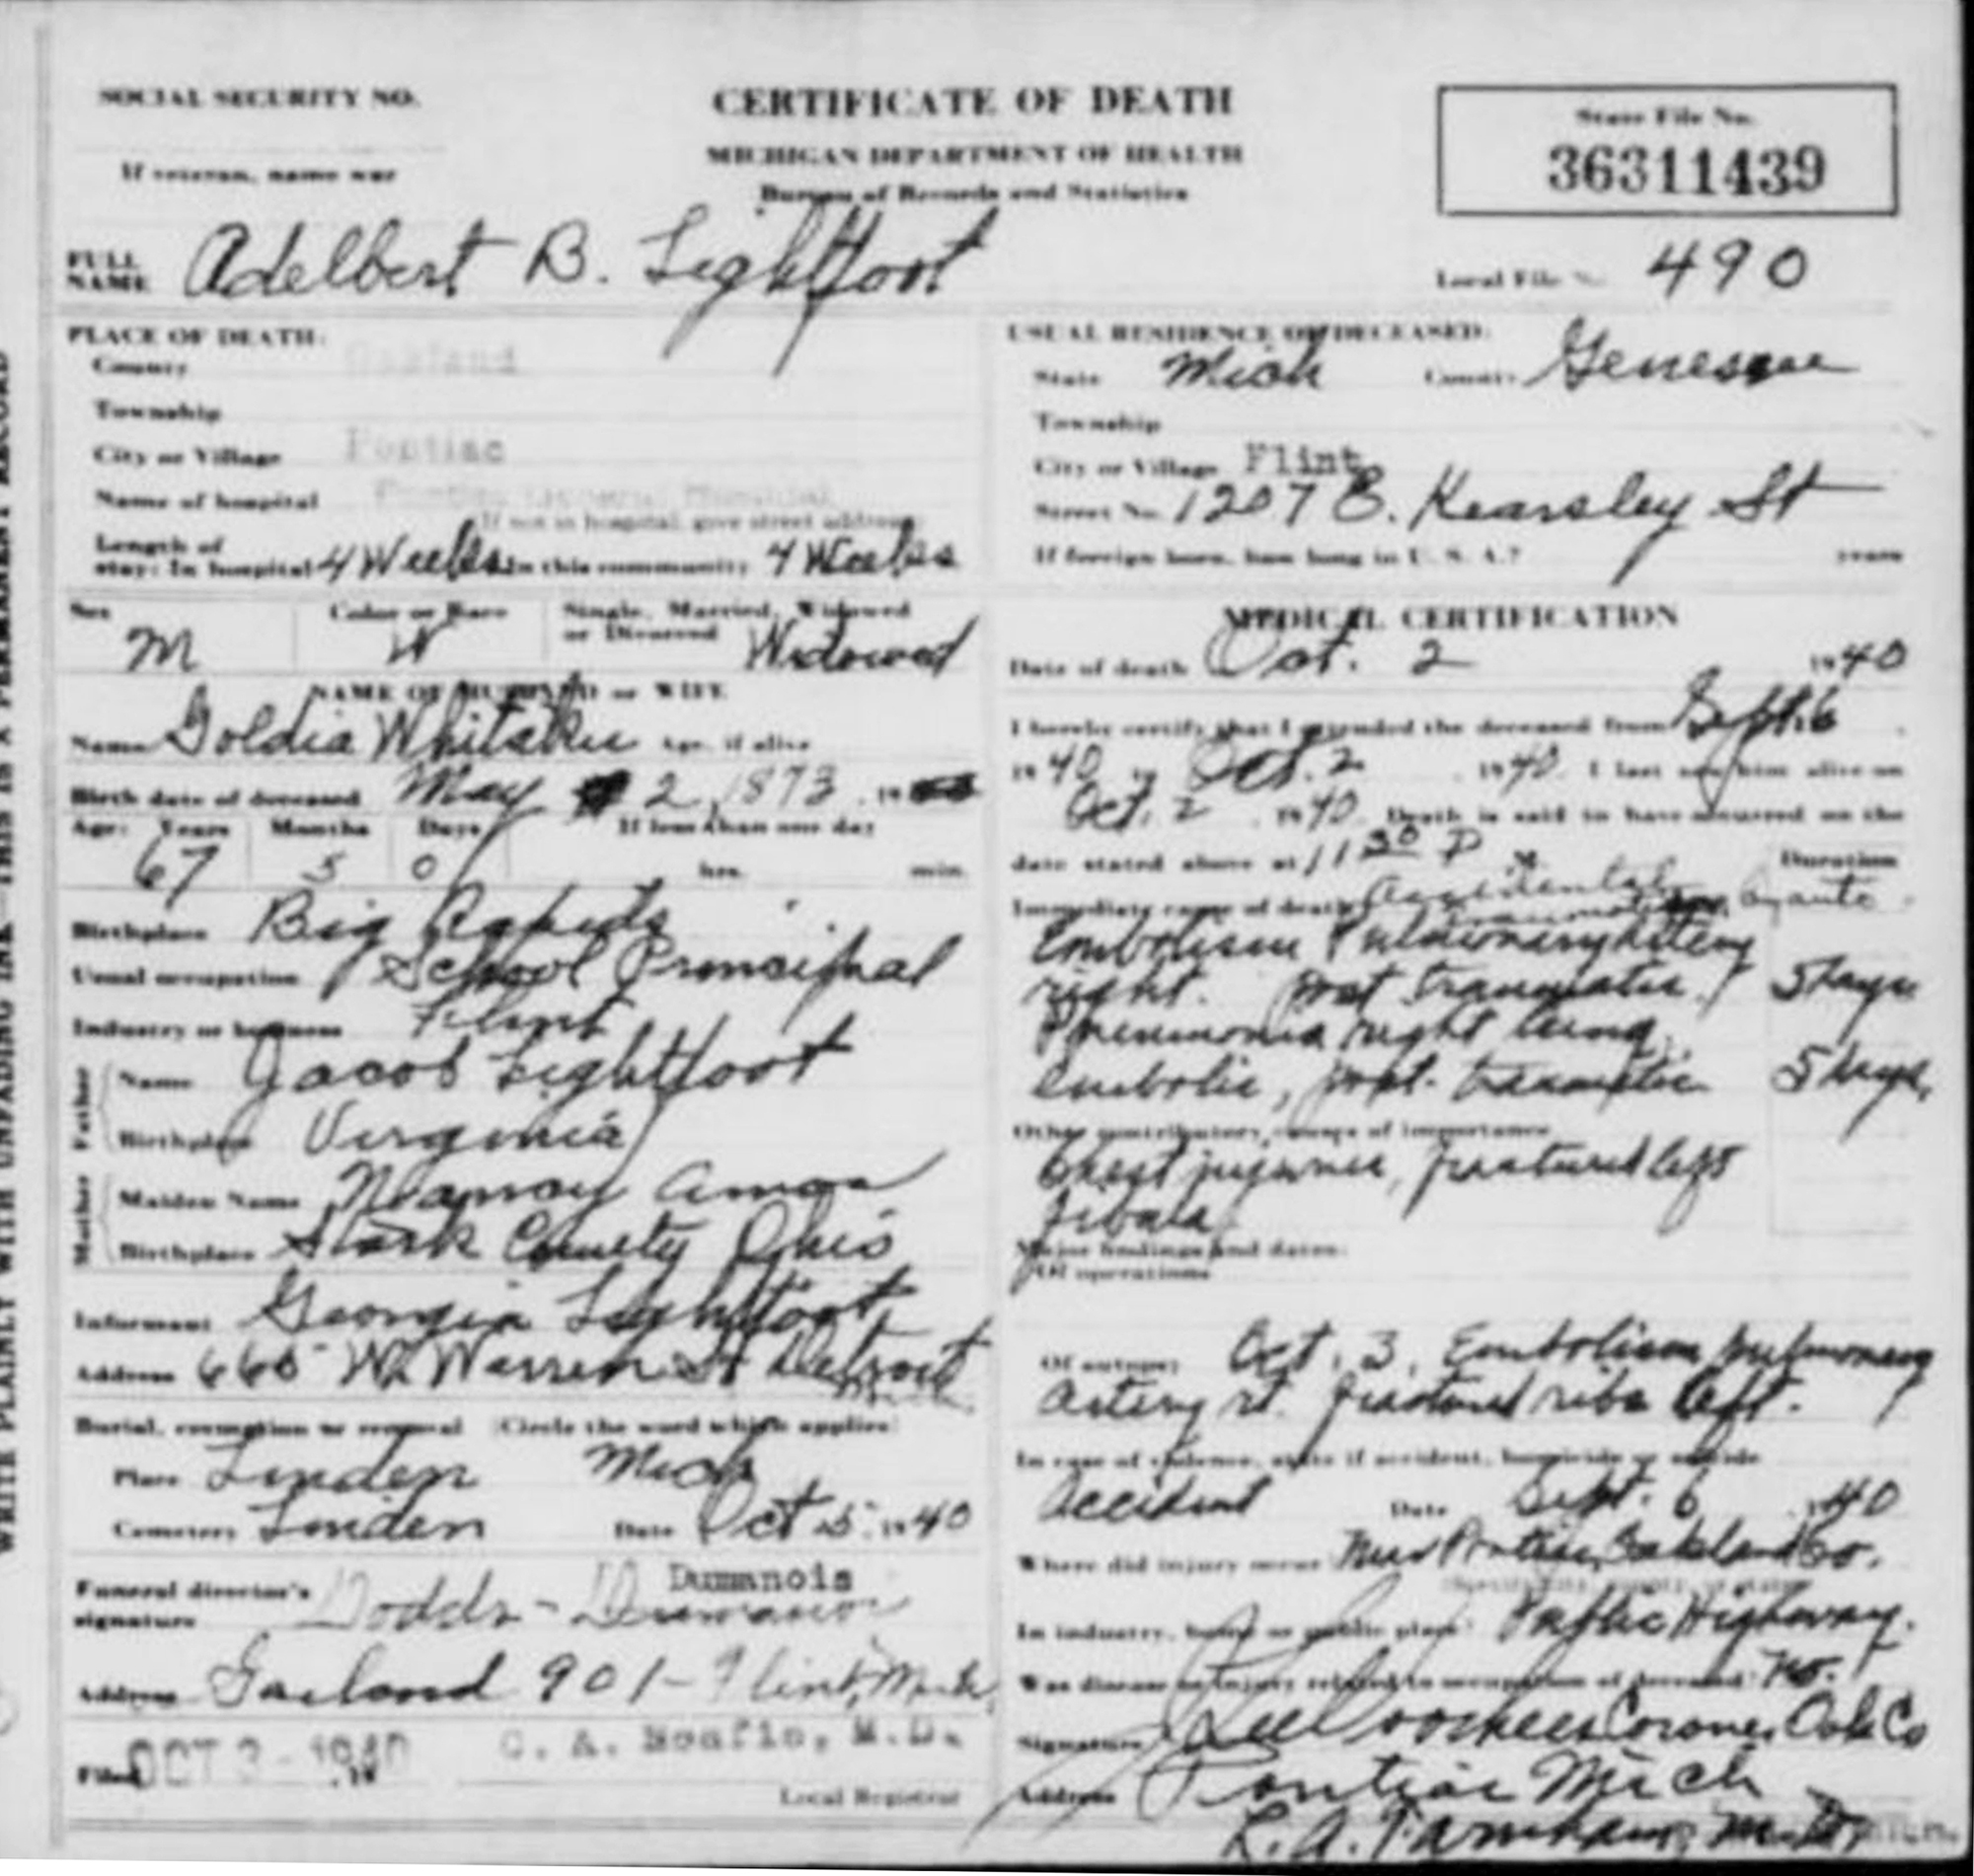 SOCIAL SECURITY NO.
If veteran, name war
CERTIFICATE OF DEATH
MICHIGAN DEPARTMENT OF HEALTH
Bureau of Records and Statistics
State File No.
36311439
FULL NAME Adelbert B. Lightfoot
Local File No. 490
PLACE OF DEATH:
County Oakland
Township
City or Village Pontiac
Name of hospital Pontiac General Hospital
(If not in hospital, give street address)
Length of stay: In hospital 4 Weeks In this community 4 Weeks
USUAL RESIDENCE OF DECEASED:
State Mich County Genesee
Township
City or Village Flint
Street No. 1207 E. Kearsley St
If foreign born, how long in U. S. A.? years
Sex M
Color or Race W
Single, Married, Widowed or Divorced Widowed
NAME OF HUSBAND or WIFE
Name Goldia Whitaker Age, if alive
Birth date of deceased May 2, 1873, 19
Age: Years 67 Months 5 Days 0 If less than one day hrs. min.
Birthplace Big Rapids
Usual occupation School Principal
Industry or business Flint
Father
Name Jacob Lightfoot
Birthplace Virginia
Mother
Maiden Name Amon
Birthplace Stark County Ohio
Informant Georgia Lightfoot
Address 665 W. Warren St Detroit
Burial, cremation or removal (Circle the word which applies)
Place Linden Mich
Cemetery Linden Date Oct 5, 1940
Funeral director's signature Dodds - Dumanois
Dumanois
Address Garland 901 - Flint, Mich
Filed OCT 3 - 1940
M.D.
Local Registrar
MEDICAL CERTIFICATION
Date of death Oct. 2 1940
I hereby certify that I attended the deceased from Sept. 6
1940 to Oct. 2, 1940. I last saw him alive on
Oct. 2, 1940. Death is said to have occurred on the
date stated above at 11 30 P M.
Duration
Immediate cause of death Accidental by auto
Embolism Pulmonary Artery
right. Post traumatic. 5 days
Pneumonia right lung,
embolic, post. traumatic 5 days
Other contributory causes of importance
Chest injuries, fractured left
fibula
Major findings and dates:
Of operations
Of autopsy Oct. 3, Embolism pulmonary
artery rt. fractured ribs left.
In case of violence, state if accident, homicide or suicide
Accident Date Sept. 6, 1940
Where did injury occur Near Pontiac, Oakland Co.
(Specify city, county, or state)
In industry, home or public place? Public Highway.
Was disease or injury related to occupation of deceased No.
Signature Lee Voorhees Coroner Oak Co
Address Pontiac Mich
L. A. Farnham, M.D.
WRITE PLAINLY WITH UNFADING INK—THIS IS A PERMANENT RECORD